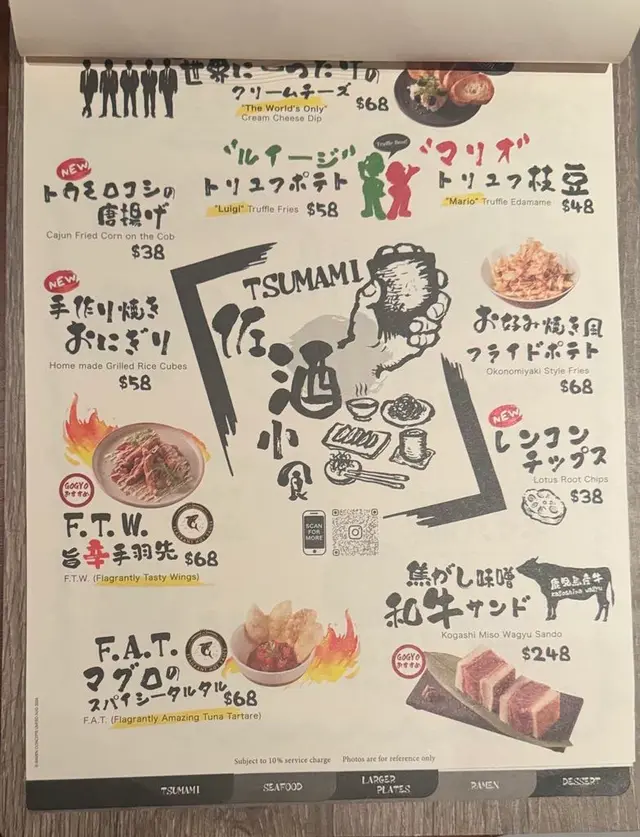 世界に一つだけの
クリームチーズ
"The World's Only"
Cream Cheese Dip
$68
"ルイージ"
トリュフポテト
"Luigi" Truffle Fries $58
Truffle Bros!
"マリオ"
トリュフ枝豆
"Mario" Truffle Edamame
$48
NEW
トウモロコシの
唐揚げ
Cajun Fried Corn on the Cob
$38
NEW
手作り焼き
おにぎり
Home made Grilled Rice Cubes
$58
TSUMAMI
佐酒小食
お好み焼き風
フライドポテト
Okonomiyaki Style Fries
$68
NEW
レンコン
チップス
Lotus Root Chips
$38
GOGYO
おすすめ
F.T.W.
旨辛手羽先 $68
F.T.W. (Flagrantly Tasty Wings)
SCAN
FOR
MORE
焦がし味噌
和牛サンド
鹿児島産牛
Kagoshima Wagyu
Kogashi Miso Wagyu Sando
$248
GOGYO
おすすめ
F.A.T.
マグロの
スパイシータルタル
$68
F.A.T. (Flagrantly Amazing Tuna Tartare)
Subject to 10% service charge Photos are for reference only
TSUMAMI
SEAFOOD
LARGER
PLATES
RAMEN
DESSERT